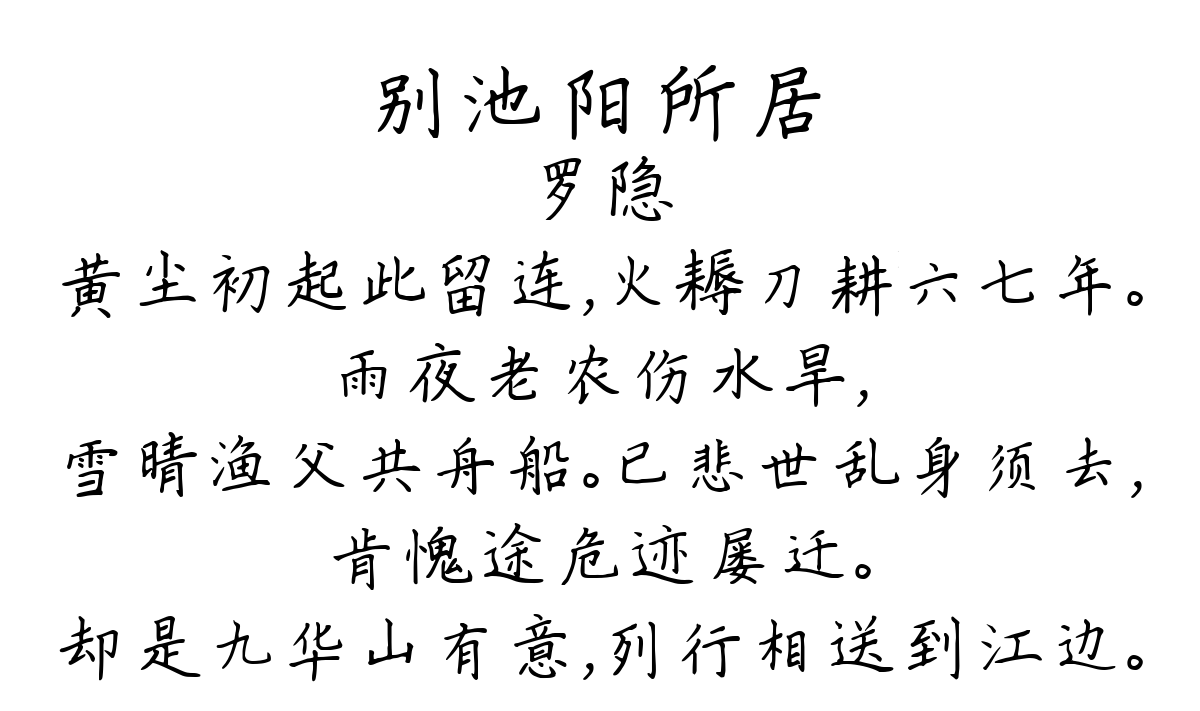 别池阳所居
罗隐
黄尘初起此留连,火耨刀耕六七年。
雨夜老农伤水旱,
雪晴渔父共舟船。已悲世乱身须去,
肯愧途危迹屡迁。
却是九华山有意,列行相送到江边。